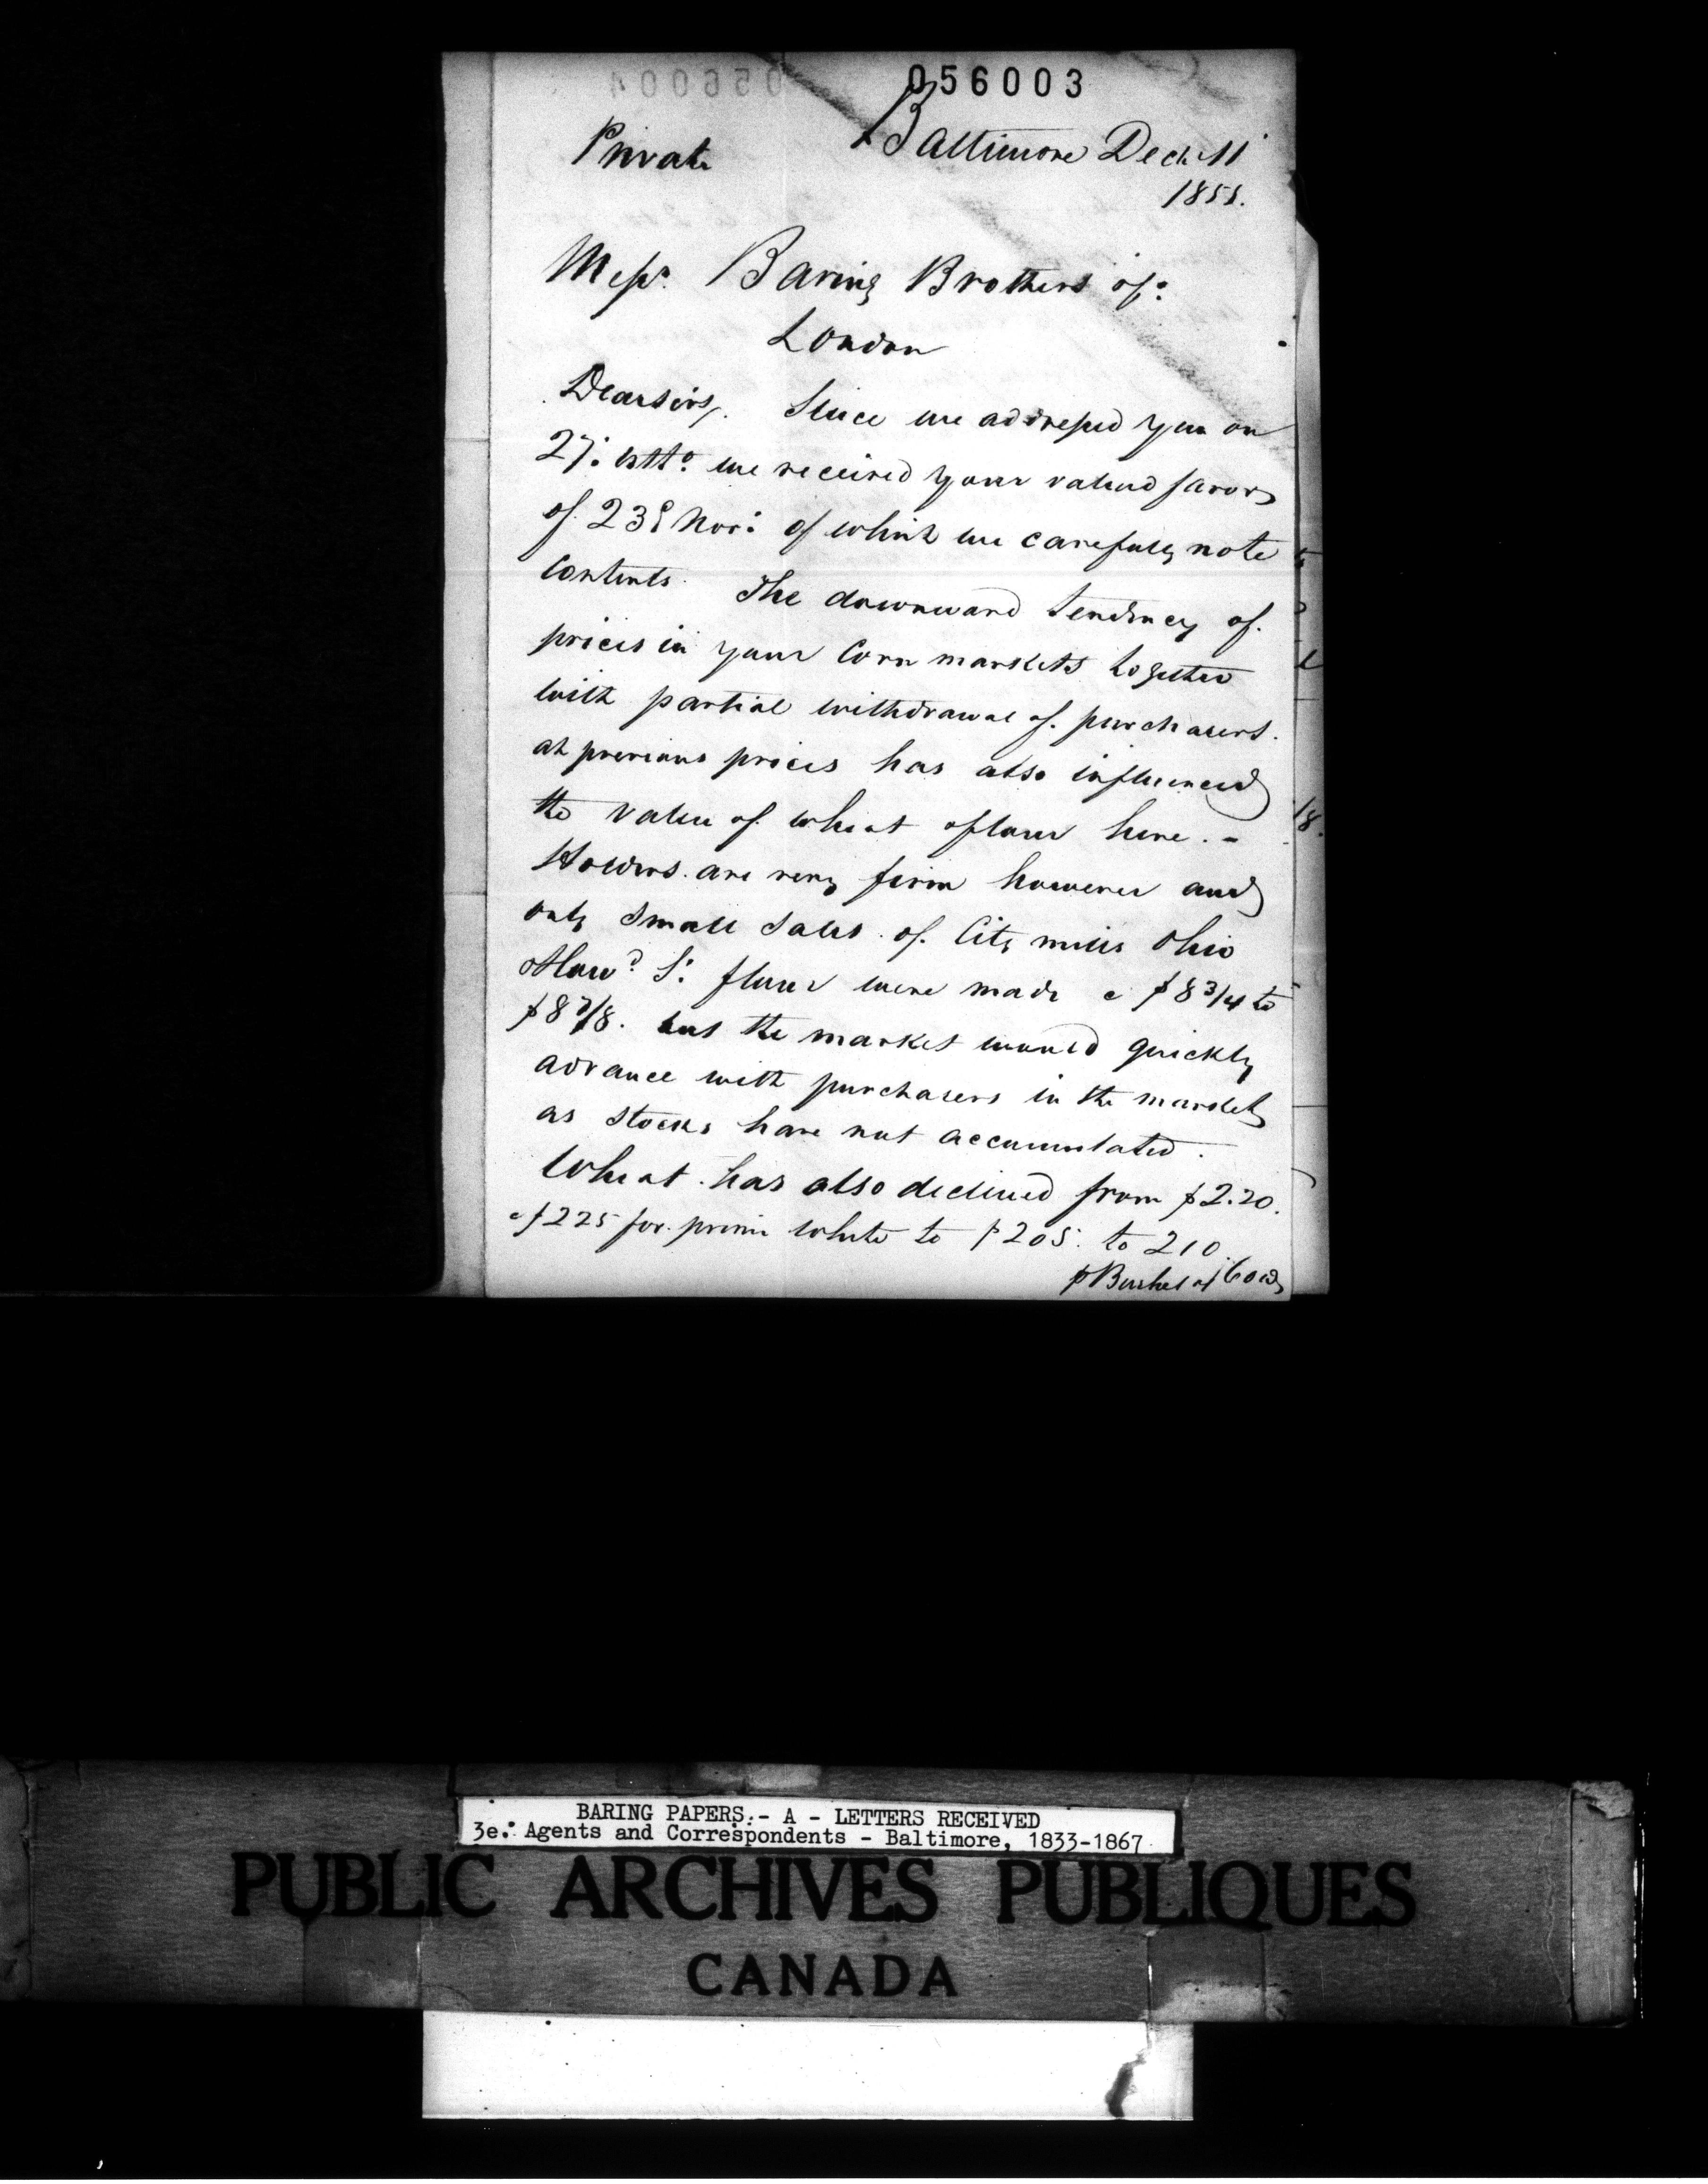 056003
Private
Baltimore Decb 11
1855.
Messrs. Baring Brothers &Co:
London
Dear Sirs, Since we addressed you on
27: ulto. we received your valued favor
of 23d Nov: of which we carefully note
contents. The downward tendency of
prices in your Corn markets together
with partial withdrawal of purchasers.
at previous prices has also influenced
the value of wheat & flour here. -
Holders are very firm however and
only small sales of City mills Ohio
& Howd St: flour were made @ $8 3/4 to
$8 7/8. but the market would quickly
advance with purchasers in the market
as stocks have not accumulated.
Wheat has also declined from $2.20.
@ $225 for prime white to $205. to 210.
p Bushel of 60 lb
18.
BARING PAPERS.- A - LETTERS RECEIVED
3e. Agents and Correspondents - Baltimore, 1833-1867
PUBLIC ARCHIVES PUBLIQUES
CANADA